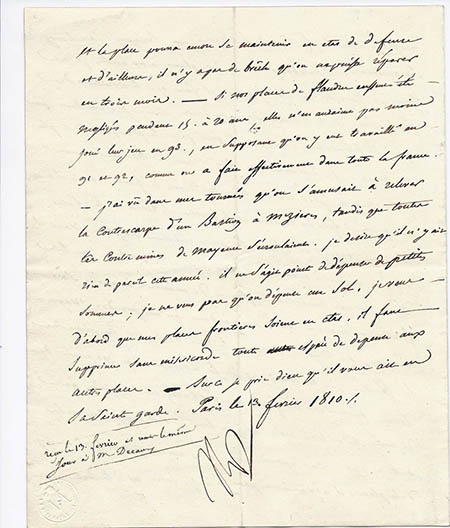 et la place pourra encore se maintenir en etat de defense
et d'ailleurs, il n'y a pas de brêche qu'on ne puisse réparer
en trois mois. — Si nos places de flandre eussent été
negligées pendant 15. à 20 ans, elles n'en auraient pas moins
joué leur jeu en 93., en supposant qu'on y eut travaillé en
91 et 92, comme on a fait effectivement dans toute la france.
— j'ai vû dans mes tournées qu'on s'amusait à relever
la Contrescarpe d'un Bastion à Mezieres, tandis que toutes
les Contremines de Mayence s'ecroulaient. je desire qu'il n'y ait
rien de pareil cette année. il ne s'agit point de dépenses de petites
sommes; je ne veux pas qu'on dépense un sol. je veux
d'abord que mes places frontieres soient en etat. il faut
supprimer sans misericorde toute espèce de depense aux
autres places. — Sur ce je prie dieu qu'il vous ait en
sa Sainte garde. Paris le 13 fevrier 1810./.
reçu le 13. fevrier et le même
jour à M Decaux